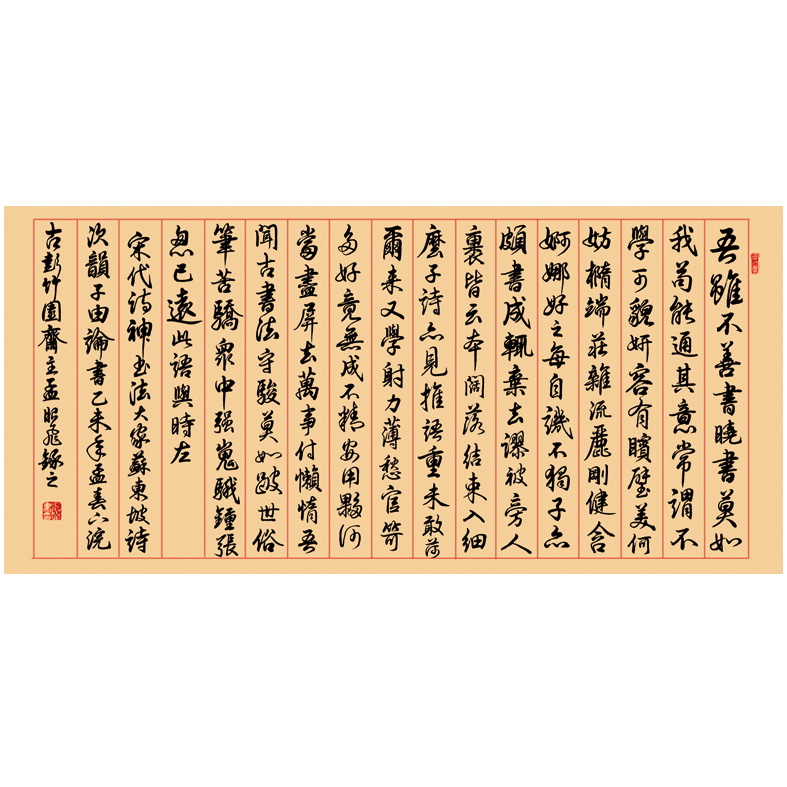 吾雖不善書曉書莫如
我苟能通其意常謂不
學可貌妍容有矉璧美何
妨橢端莊雜流麗剛健含
婀娜好之每自譏不獨子亦
頗書成輒棄去謬被旁人
裹皆云本闊落結束入細
麼子詩亦見推語重未敢荷
爾来又學射力薄愁官笴
多好竟無成不精安用夥何
當盡屏去萬事付懶惰吾
聞古書法守駿莫如跛世俗
筆苦驕衆中强嵬騀鍾張
忽已遠此語與時左
宋代詩神書法大家蘇東坡詩
次韻子由論書乙未年孟春下浣
古彭竹園齋主孟昭飛錄之